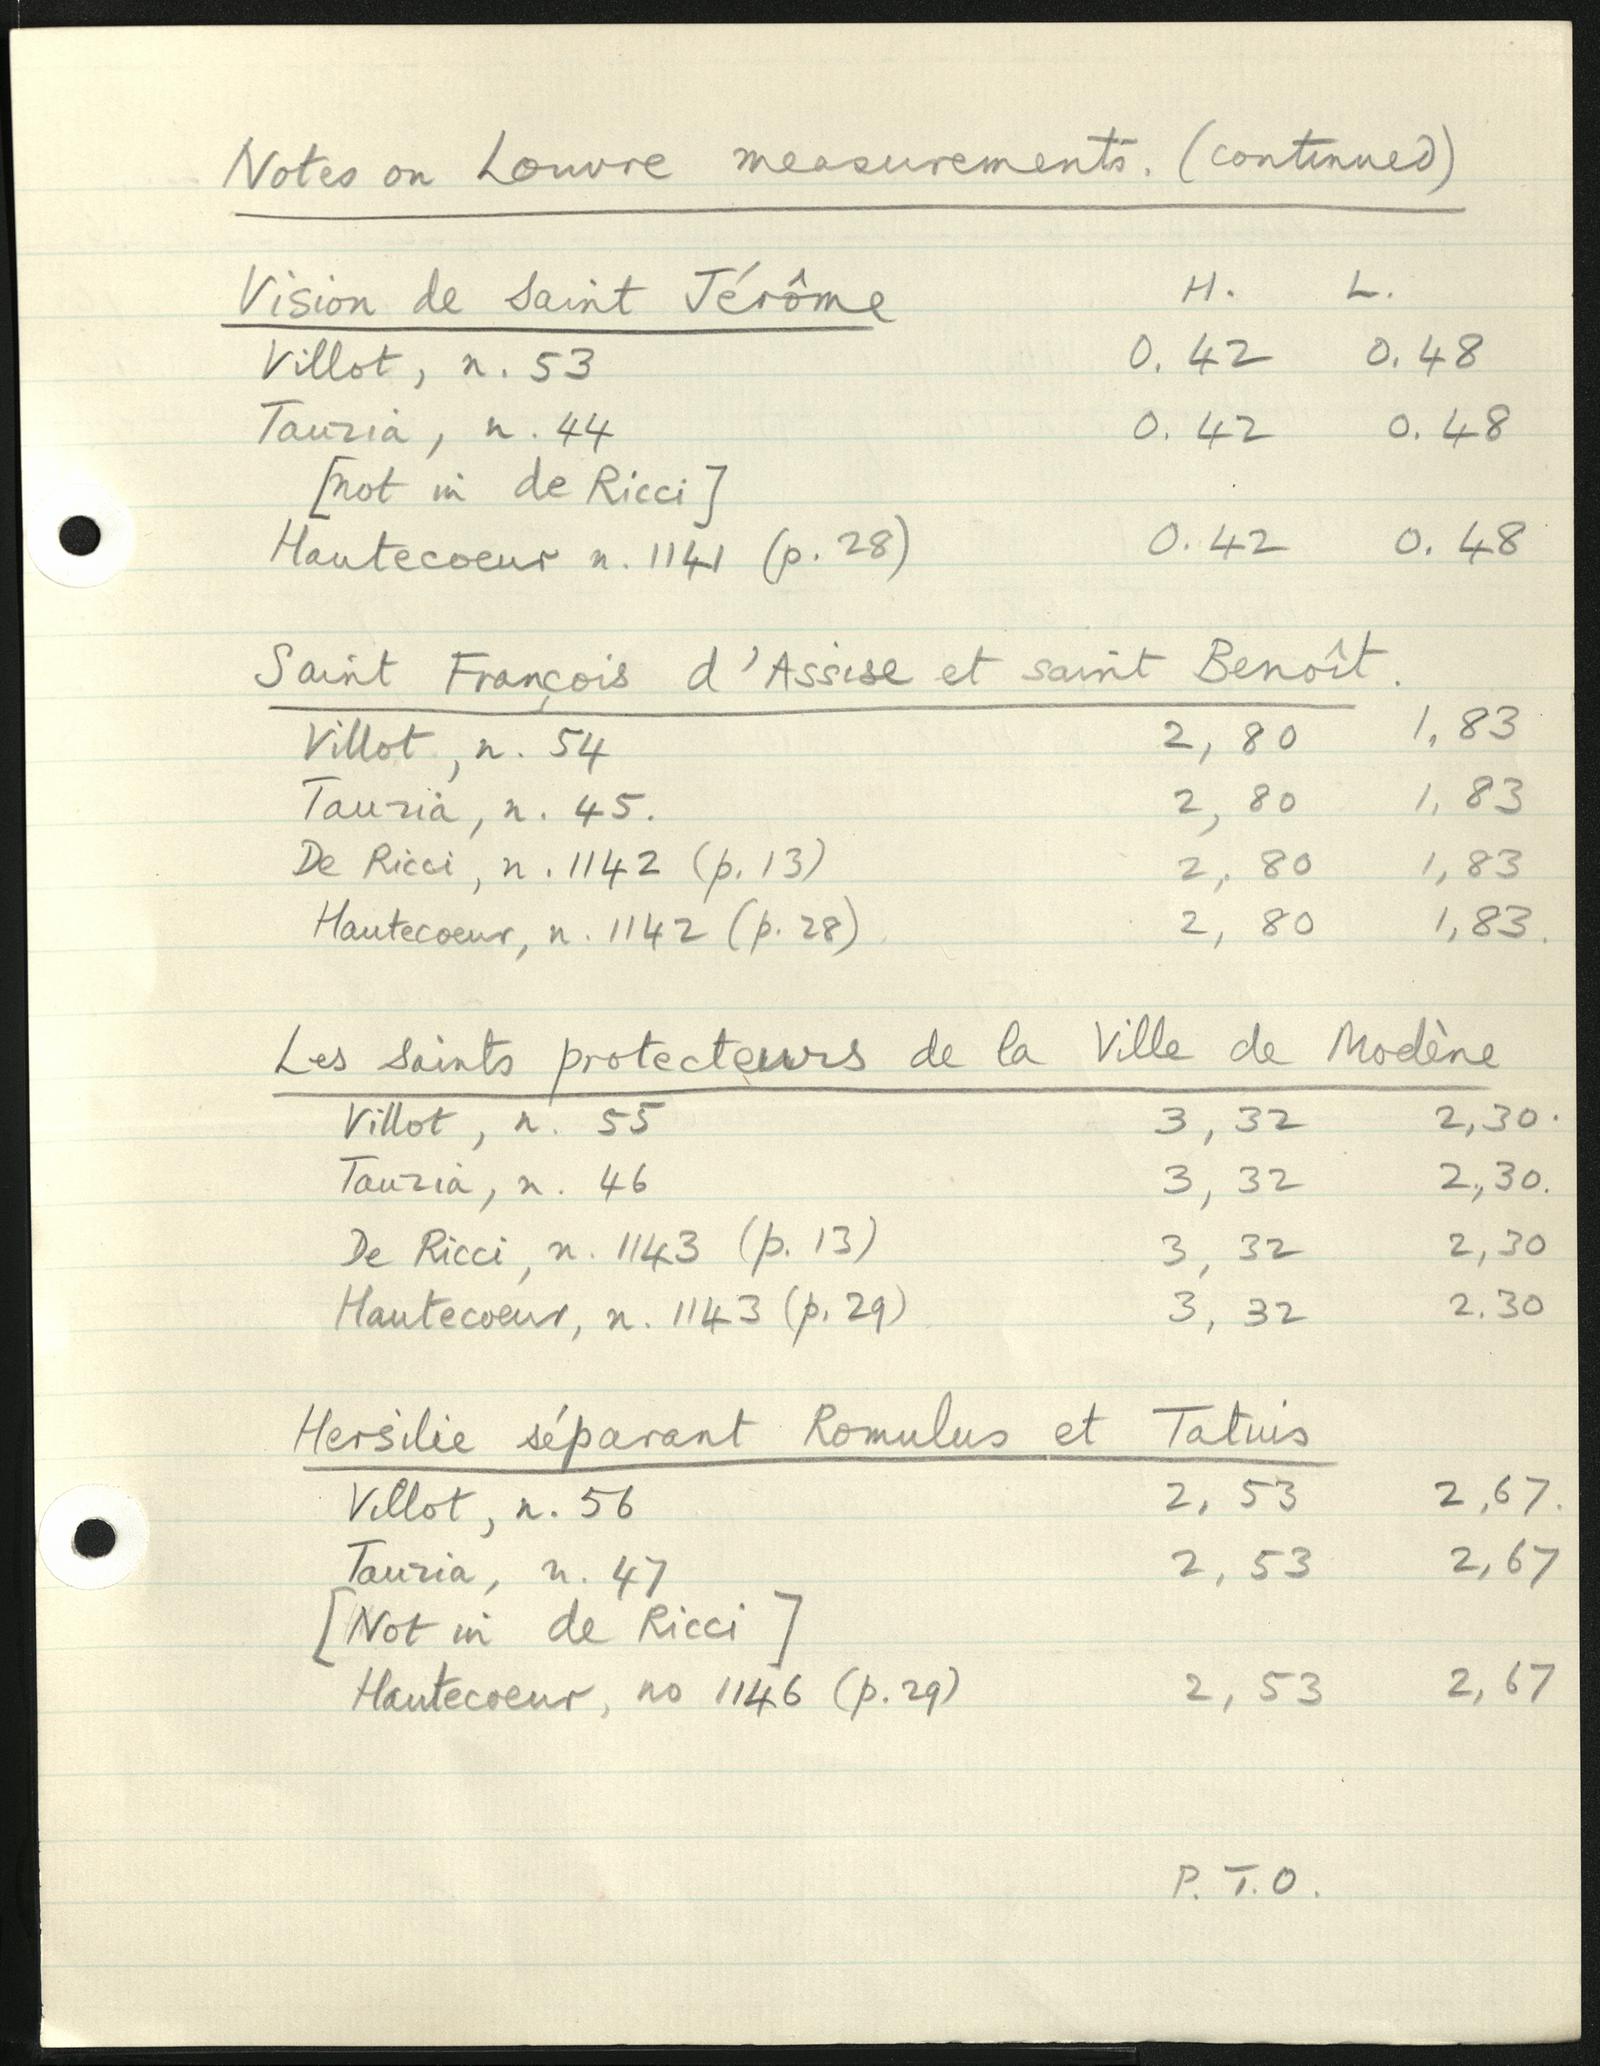 Notes on Louvre measurements. (continued)
Vision de Saint Jérôme H. L.
Villot, n. 53 0.42 0.48
Tauzia, n. 44 0.42 0.48
[not in de Ricci]
Hautecoeur n. 1141 (p. 28) 0.42 0.48
Saint François d'Assise et saint Benoît.
Villot, n. 54 2,80 1,83
Tauzia, n. 45. 2,80 1,83
De Ricci, n. 1142 (p. 13) 2,80 1,83
Hautecoeur, n. 1142 (p. 28) 2,80 1,83.
Les Saints protecteurs de la Ville de Modène
Villot, n. 55 3,32 2,30.
Tauzia, n. 46 3,32 2,30.
De Ricci, n. 1143 (p. 13) 3,32 2,30
Hautecoeur, n. 1143 (p. 29) 3,32 2.30
Hersilie séparant Romulus et Tatius
Villot, n. 56 2,53 2,67.
Tauzia, n. 47 2,53 2,67
[Not in de Ricci]
Hautecoeur, no 1146 (p. 29) 2,53 2,67
P.T.O.